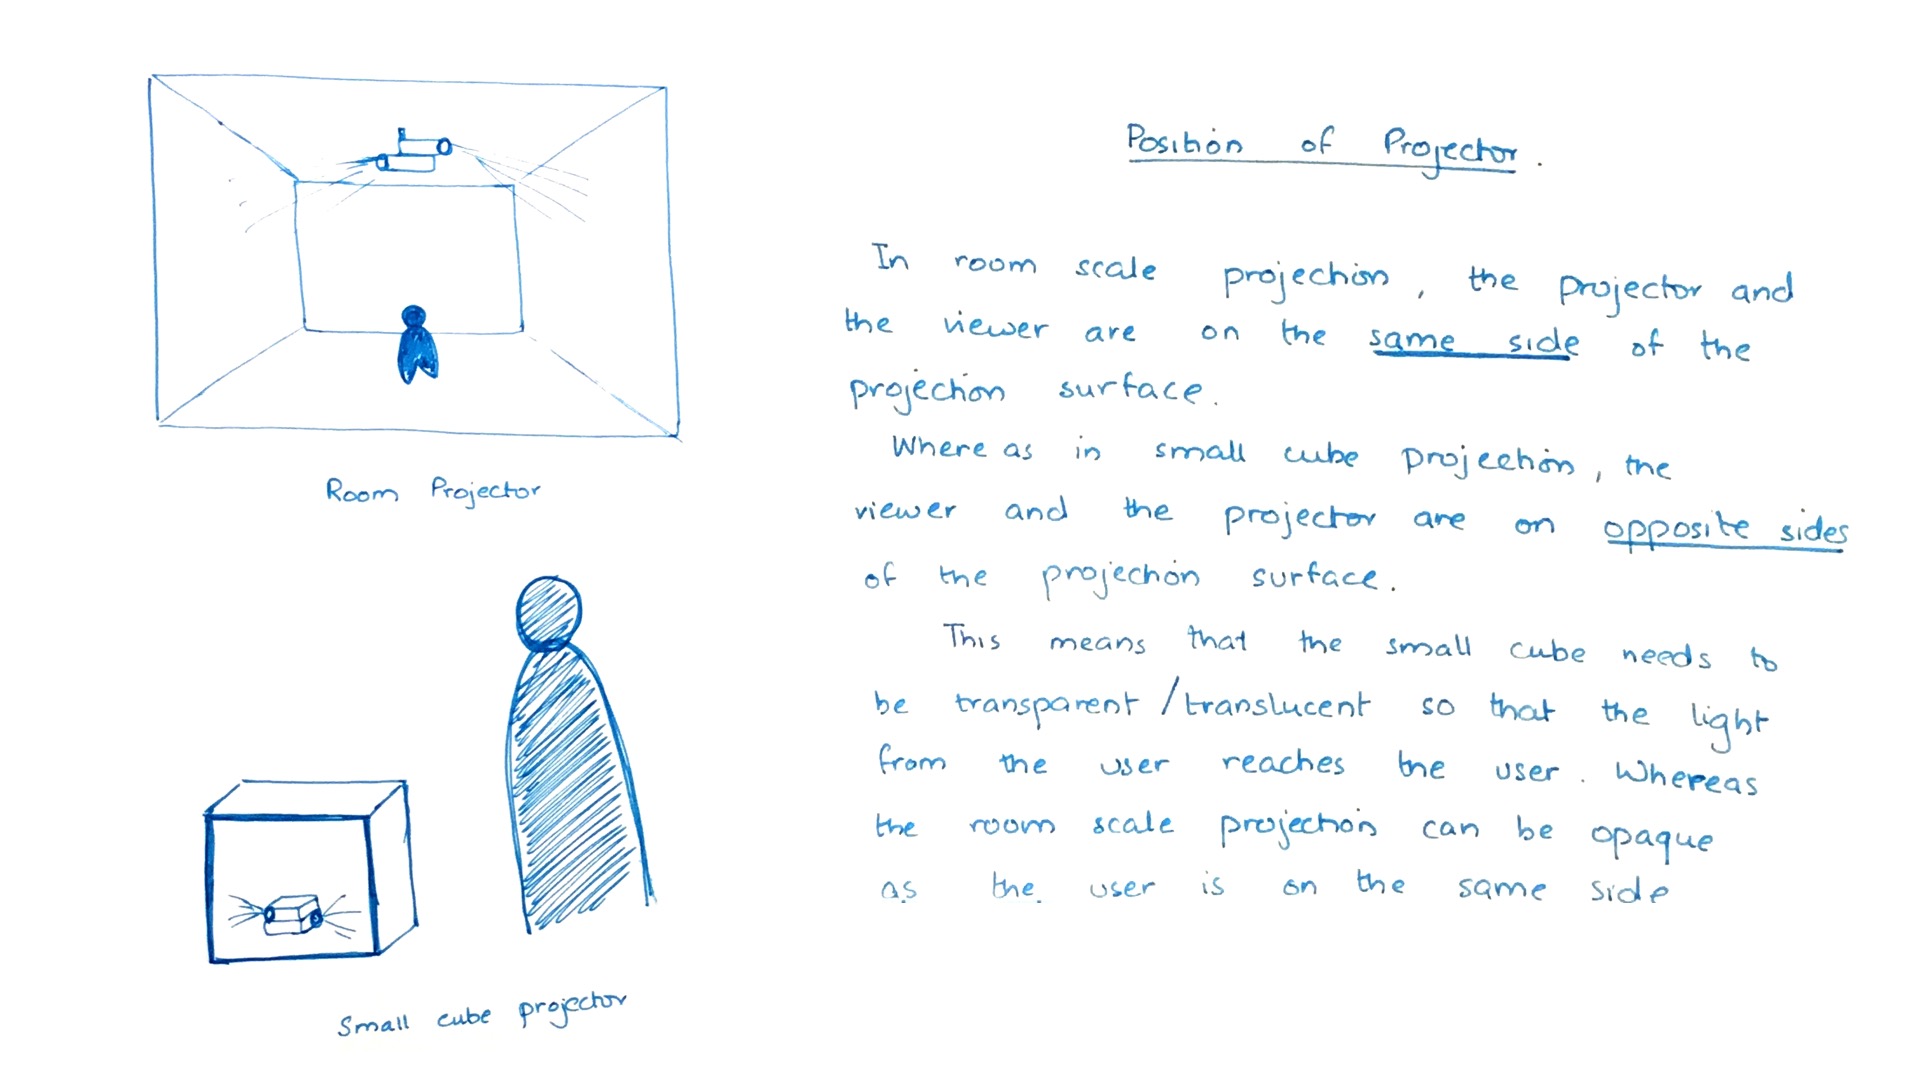 Position of Projector.
In room scale projection, the projector and
the viewer are on the same side of the
projection surface.
Where as in small cube projection, the
viewer and the projector are on opposite sides
of the projection surface.
This means that the small cube needs to
be transparent/translucent so that the light
from the user reaches the user. Whereas
the room scale projection can be opaque
as the user is on the same side
Room Projector
Small cube projector